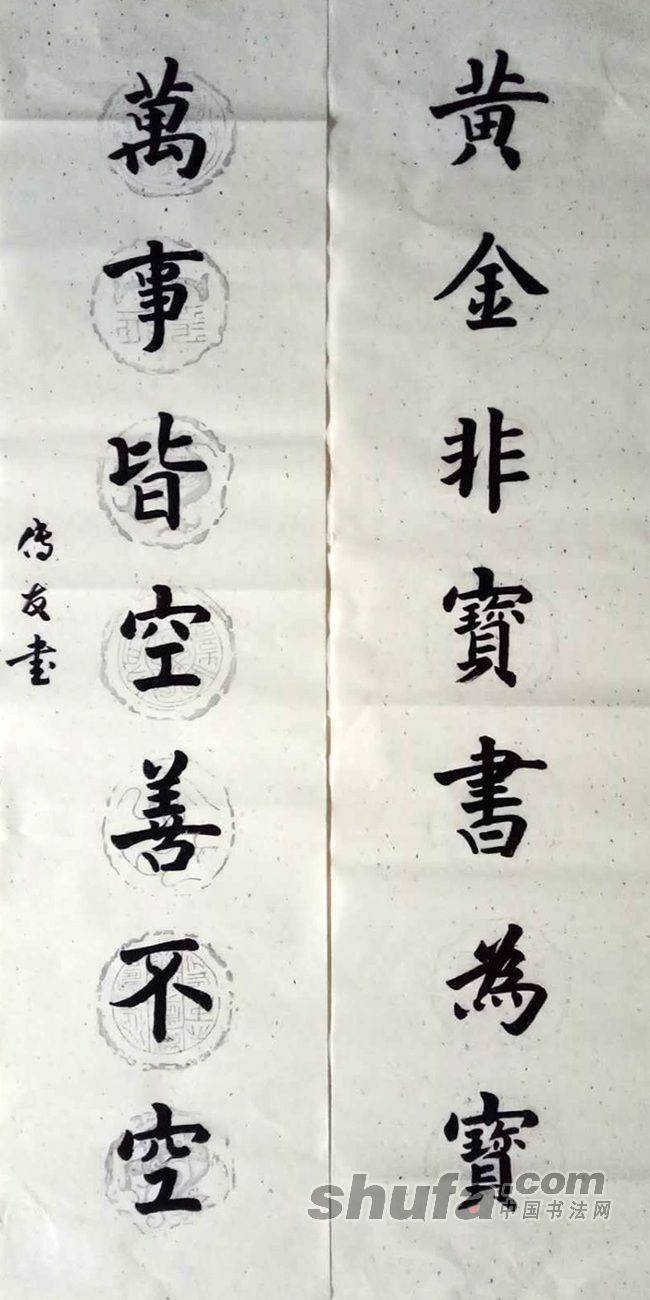 黄金非寳書為寳
萬事皆空善不空
傳友書
shufa.com
中国书法网